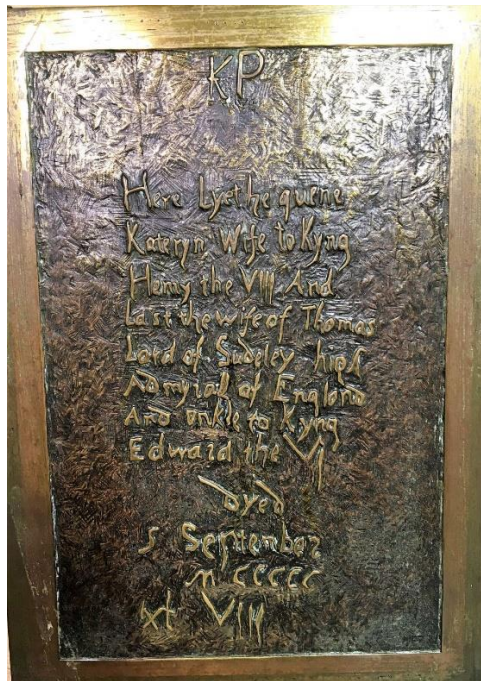 KP
Here Lyethe quene
Kateryn Wife to Kyng
Henry the VIII And
Last the wife of Thomas
Lord of Sudeley highy
Admyrall of England
And onkle to Kyng
Edward the VI
dyed
5 September
MCCCCC
xl VIII